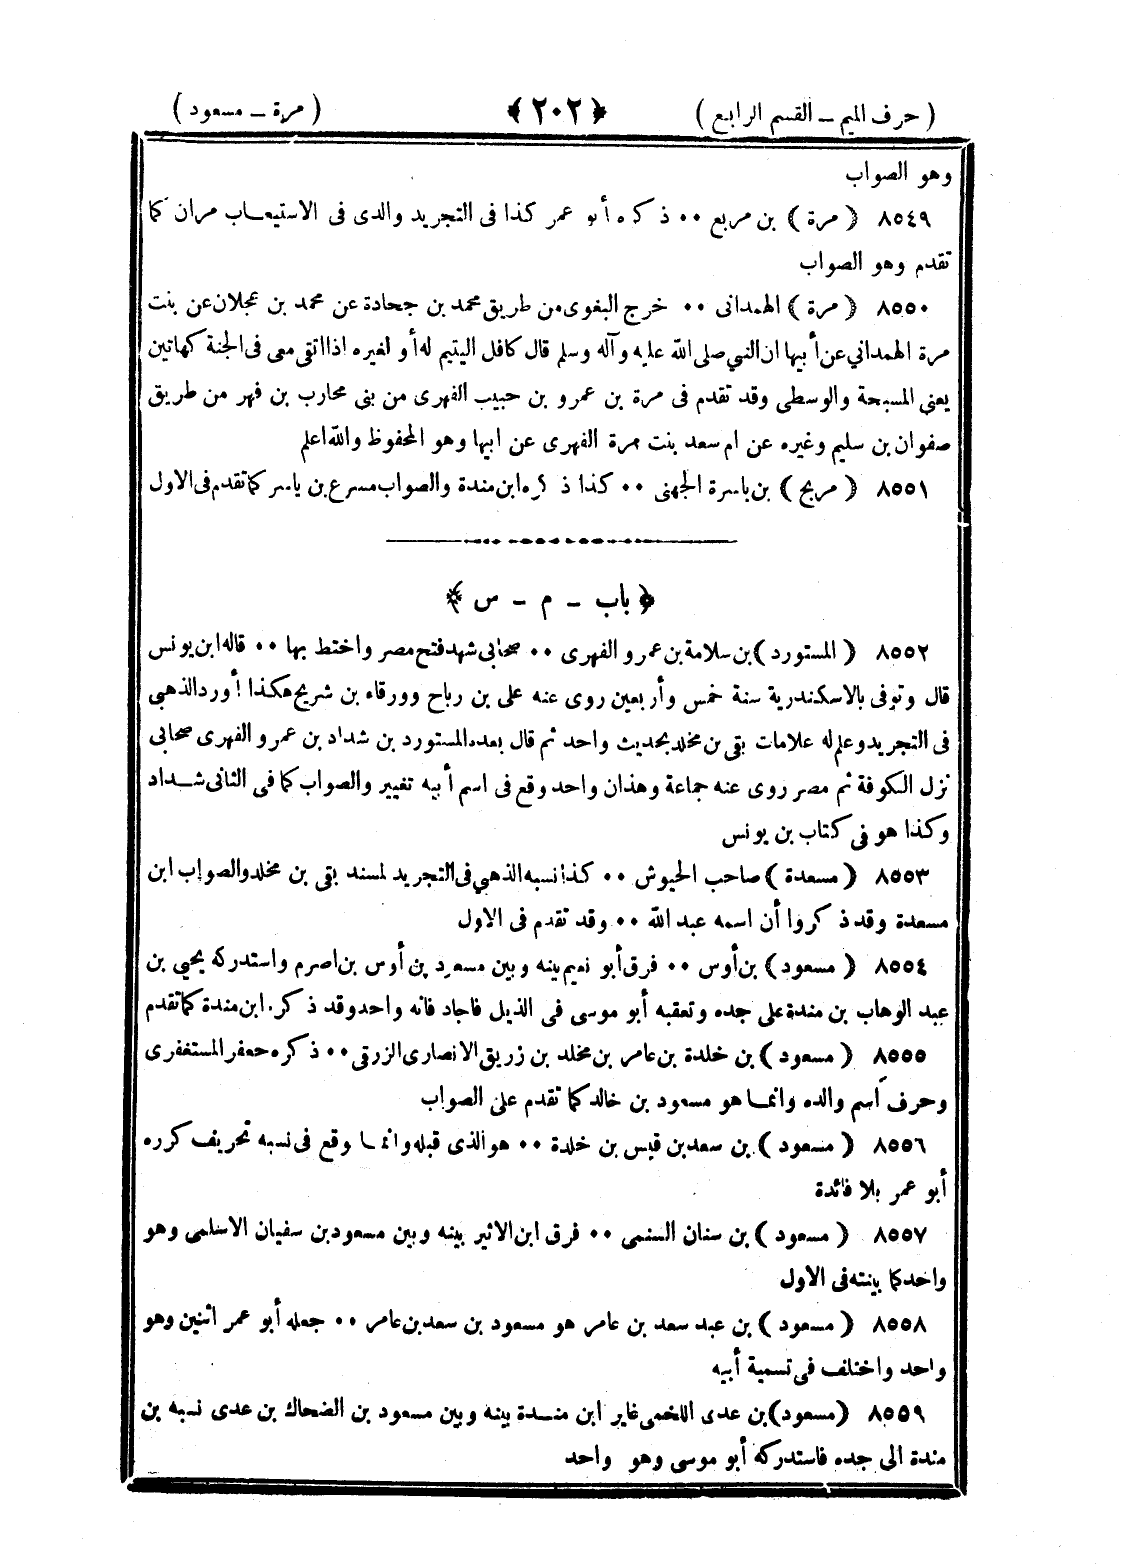 ( حرف الميم ــ القسم الرابع ) ﴿ ٢٠٢ ﴾ ( مرة ــ مسعود )
وهو الصواب
٨٥٤٩ ( مرة ) بن مربع ٠٠ ذكره أبو عمر كذا فى التجريد والذى فى الاستيعاب مران كما
تقدم وهو الصواب
٨٥٥٠ ( مرة ) الهمدانى ٠٠ خرج البغوى من طريق محمد بن جحادة عن محمد بن عجلان عن بنت
مرة الهمداني عن أبيها ان النبي صلى الله عليه وآله وسلم قال كافل اليتيم له أو لغيره اذا اتقى معى فى الجنة كهاتين
يعنى المسبحة والوسطى وقد تقدم فى مرة بن عمرو بن حبيب الفهرى من بنى محارب بن فهر من طريق
صفوان بن سليم وغيره عن ام سعد بنت مرة الفهرى عن ابيها وهو المحفوظ والله اعلم
٨٥٥١ ( مريح ) بن ياسرة الجهنى ٠٠ كذا ذكره ابن مندة والصواب مسرع بن ياسر كما تقدم فى الاول
﴿ باب ــ م ــ س ﴾
٨٥٥٢ ( المستورد ) بن سلامة بن عمرو الفهرى ٠٠ صحابى شهد فتح مصر واختط بها ٠٠ قاله ابن يونس
قال وتوفى بالاسكندرية سنة خمس وأربعين روى عنه على بن رباح وورقاء بن شريح هكذا أورد الذهبي
فى التجريد وعلم له علامات بقى بن مخلد بحديث واحد ثم قال بعده المستورد بن شداد بن عمرو الفهرى صحابى
نزل الكوفة ثم مصر روى عنه جماعة وهذان واحد وقع فى اسم أبيه تغيير والصواب كما فى الثانى شداد
وكذا هو فى كتاب بن يونس
٨٥٥٣ ( مسعدة ) صاحب الجيوش ٠٠ كذا نسبه الذهبي فى التجريد لمسند بقى بن مخلد والصواب ابن
مسعدة وقد ذكروا أن اسمه عبد الله ٠٠ وقد تقدم فى الاول
٨٥٥٤ ( مسعود ) بن أوس ٠٠ فرق أبو نعيم بينه وبين مسعود بن أوس بن اصرم واستدركه يحيى بن
عبد الوهاب بن مندة على جده وتعقبه أبو موسى فى الذيل فاجاد فانه واحد وقد ذكره ابن مندة كما تقدم
٨٥٥٥ ( مسعود ) بن خلدة بن عامر بن مخلد بن زريق الانصارى الزرقى ٠٠ ذكره جعفر المستغفرى
وحرف اسم والده وانما هو مسعود بن خالد كما تقدم على الصواب
٨٥٥٦ ( مسعود ) بن سعد بن قيس بن خلدة ٠٠ هو الذى قبله وانما وقع فى نسبه تحريف كرره
أبو عمر بلا فائدة
٨٥٥٧ ( مسعود ) بن سنان السلمى ٠٠ فرق ابن الاثير بينه وبين مسعود بن سفيان الاسلمى وهو
واحد كما بينته فى الاول
٨٥٥٨ ( مسعود ) بن عبد سعد بن عامر هو مسعود بن سعد بن عامر ٠٠ جعله أبو عمر اثنين وهو
واحد واختلف فى تسمية أبيه
٨٥٥٩ ( مسعود ) بن عدى اللخمى غاير ابن مندة بينه وبين مسعود بن الضحاك بن عدى نسبه بن
مندة الى جده فاستدركه أبو موسى وهو واحد